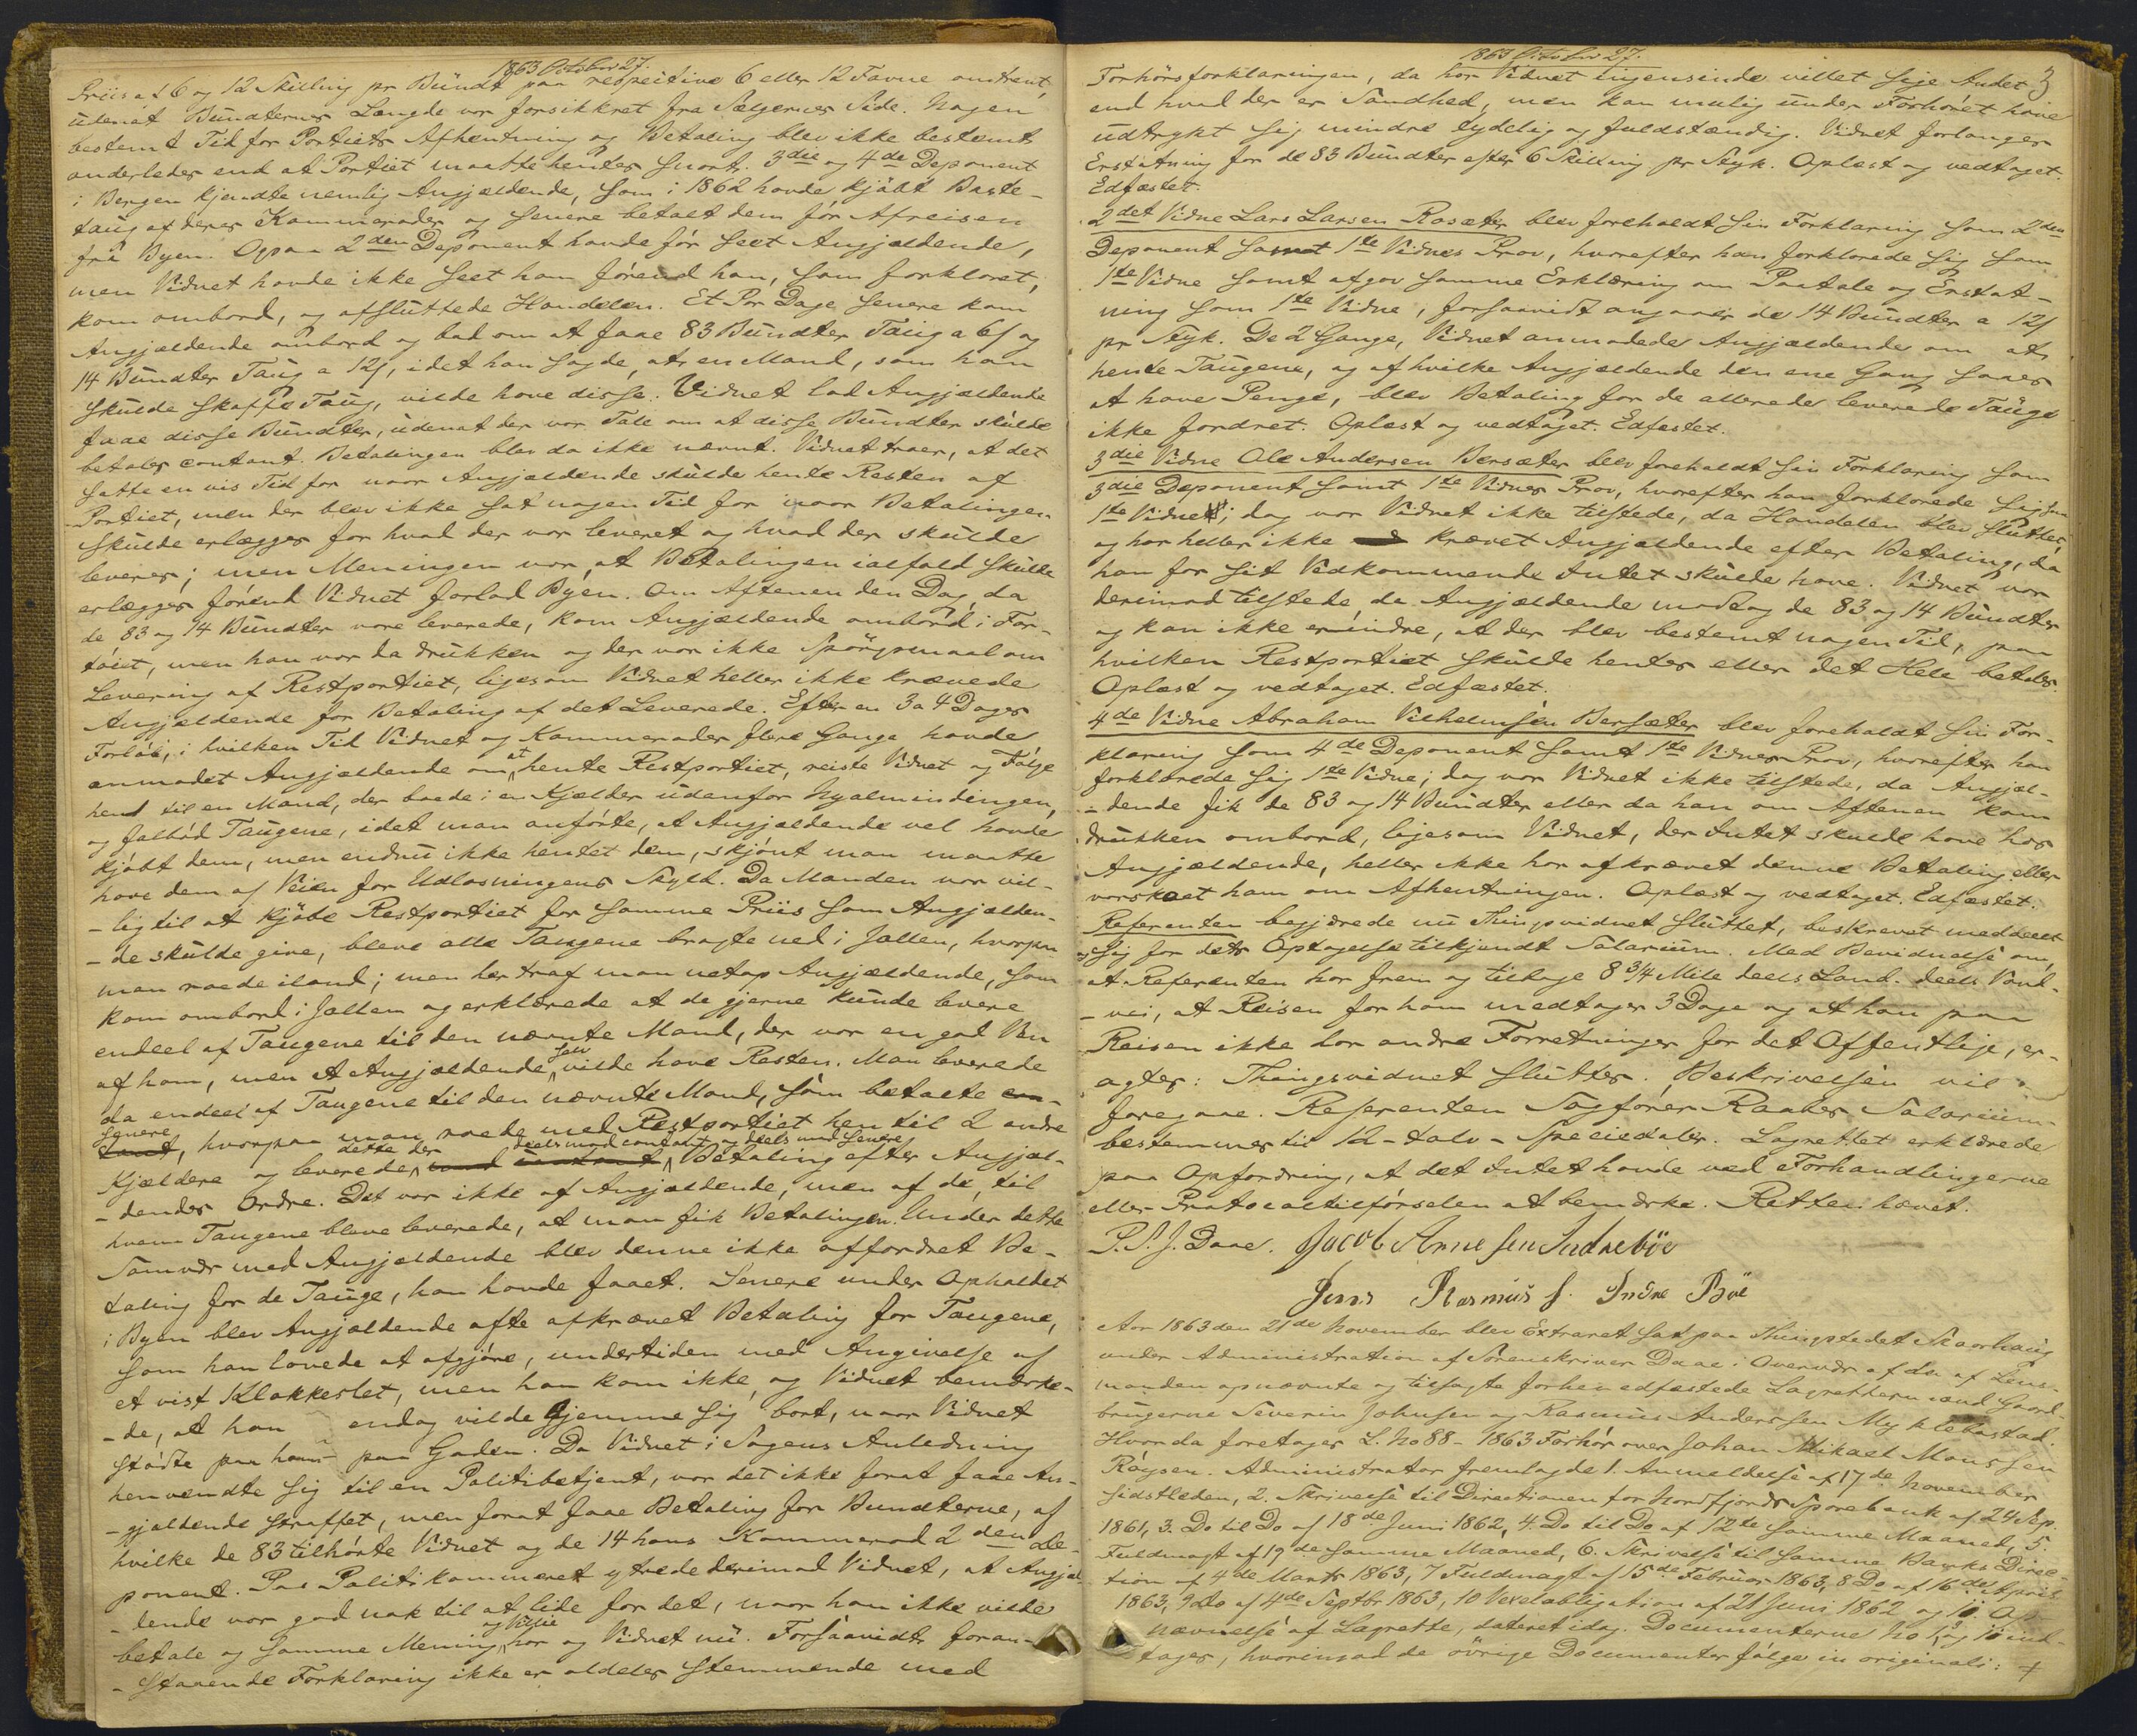 1863 October 27.
Priis af 6 og 12 Skilling pr Bundt paa respective 6 eller 12 Favne omtrent,
udenat Bundternes Længde var forsikkret fra Sælgernes Side. Nogen
bestemt Tid for Partiets Afhentning og Betaling blev ikke bestemt
anderledes end at Partiet maatte hentes snart. 3die og 4de Deponent
i Bergen kjendte nemlig Angjældende, som i 1862 havde kjöbt Baste-
taug af deres Kammerader og senere betalt dem för Afreisen
fra Byen. Ogsaa 2den Deponent havde för seet Angjældende,
men Vidnet havde ikke seet ham förend han, som forklaret,
kom ombord, og afsluttede Handelen. Et Par Dage senere kom
Angjældende ombord og bad om at faae 83 Bundter Taug a 6 s og
14 Bundter Taug a 12 s, idet han sagde, at en Mand, som han
skulde skaffe Taug, vilde have disse. Vidnet lod Angjældende
faae disse Bundter, udenat der var Tale om at disse Bundter skulde
betales contant. Betalingen blev da ikke nævnt. Vidnet troer, at det
satte en vis Tid for naar Angjældende skulde hente Resten af
Partiet, men der blev ikke sat nogen Tid for naar Betalingen
skulde erlægges for hvad der var leveret og hvad der skulde
leveres; men Meningen var, at Betalingen ialfald skulde
erlægges förend Vidnet forlod Byen. Om Aftenen den Dag, da
de 83 og 14 Bundter vare leverede, kom Angjældende ombord i Far-
töiet, men han var da drukken og der var ikke Spörgsmaal om
Levering af Restpartiet, ligesom Vidnet heller ikke krævede
Angjældende for Betaling af det Leverede. Efter en 3 a 4 Dages
Forlöb, i hvilken Tid Vidnet og Kammerader flere Gange havde
anmodet Angjældende om at hente Restpartiet, reiste Vidnet og Fölge
hend til en Mand, der boede i en Kjælder udenfor Nyalmindingen,
og falböd Taugene, idet man anförte, at Angjældende vel havde
kjöbt dem, men endnu ikke hentet dem, skjönt man maatte
have dem af Veien for Udlosningens Skyld. Da Manden var vil-
-lig til at kjöbe Restpartiet for samme Priis som Angjælden-
-de skulde give, bleve alle Taugene bragte ned i Jallen, hvorpaa
man roede iland; men her traf man netop Angjældende, som
kom ombord i Jallen og erklærede at de gjerne kunde levere
endeel af Taugene til den nævnte Mand, der var en god Ven
af ham, men at Angjældende selv vilde have Resten. Man leverede
da endeel af Taugene til den nævnte Mand, som betalte
senere, hvorpaa man roede med Restpartiet hen til 2 andre
Kjældere og leverede dette der deels mod contant og deels mod senere Betaling efter Angjæl-
-dendes Ordre. Det var ikke af Angjældende, men af de, til
hvem Taugene bleve leverede, at man fik Betalingen. Under dette
Samvær med Angjældende blev denne ikke affordret Be-
taling for de Tauge, han havde faaet. Senere under Opholdet
i Byen blev Angjældende ofte afkrævet Betaling for Taugene,
som han lovede at afgjöre, undertiden med Angivelse af
et vist Klokkeslet, men han kom ikke, og Vidnet bemærke-
-de, at han endog vilde gjemme sig bort, naar Vidnet
stödte paa ham paa Gaden. Da Vidnet i Sagens Anledning
henvendte sig til en Politibetjent, var det ikke forat faae An-
-gjældende straffet, men forat faae Betaling for Bundterne, af
hvilke de 83 tilhörte Vidnet og de 14 hans Kammerad 2den De-
ponent. Paa Politikammeret ytrede derimod Vidnet, at Angjæl-
-dende var god nok til at lide for det, naar han ikke vilde
betale og samme Mening og Villie har og Vidnet nu. Forsaavidt foran-
-staaende Forklaring ikke er aldeles stemmende med
1863 October 27.
3
Forhörsforklaringen, da har Vidnet ingensinde villet sige Andet
end hvad der er Sandhed, men kan mulig under Forhöret have
udtrykt sig mindre tydelig og fuldstændig. Vidnet forlanger
Erstatning for de 83 Bundter efter 6 Skilling pr Styk. Oplæst og vedtaget.
Edfæstet.
2det Vidne Lars Larsen Rosæter blev foreholdt sin Forklaring som 2den
Deponent samt 1ste Vidnes Prov, hvorefter han forklarede sig som
1ste Vidne samt afgav samme Erklæring om Paatale og Erstat-
ning som 1ste Vidne, forsaavidt angaaer de 14 Bundter a 12 s
pr Styk. De 2 Gange, Vidnet anmodede Angjældende om at
hente Taugene, og af hvilke Angjældende den ene Gang saaes
at have Penge, blev Betaling for de allerede leverede Tauge
ikke fordret. Oplæst og vedtaget. Edfæstet.
3die Vidne Ole Andersen Bersæter blev foreholdt sin Forklaring som
3die Deponent samt 1ste Vidnes Prov, hvorefter han forklarede sig som
1ste Vidne; dog var Vidnet ikke tilstede, da Handelen blev sluttet,
og har heller ikke krævet Angjældende efter Betaling, da
han for sit Vedkommende Intet skulde have. Vidnet var
derimod tilstede, da Angjældende modtog de 83 og 14 Bundter
og kan ikke erindre, at der blev bestemt nogen Tid, paa
hvilken Restpartiet skulde hentes eller det Hele betales.
Oplæst og vedtaget. Edfæstet.
4de Vidne Abraham Vilhelmsen Bersæter blev foreholdt sin For-
klaring som 4de Deponent samt 1ste Vidnes Prov, hvorefter han
forklarede sig 1ste Vidne; dog var Vidnet ikke tilstede, da Angjæl-
-dende fik de 83 og 14 Bundter eller da han om Aftenen kom
drukken ombord, ligesom Vidnet, der Intet skulde have hos
Angjældende, heller ikke har afkrævet denne Betaling eller
varskoet ham om Afhentningen. Oplæst og vedtaget. Edfæstet.
Referenten begjærede nu Thingsvidnet sluttet, beskrevet meddeelt
og sig for dets Optagelse tilkjendt Salarium. Med Bevidnelse om,
at Referenten har frem og tilbage 8 3/4 Mile deels Land- deels Vand-
-vei, at Reisen for ham medtager 3 Dage og at han paa
Reisen ikke har andre Forretninger for det Offentlige, er-
agtes: Thingsvidnet sluttes. Beskrivelsen vil
foregaae. Referenten Sagförer Raabes Salarium
bestemmes til 12 - tolv - Speciedaler. Lagrettet erklærede
paa Opfordring, at det Intet havde ved Forhandlingerne
eller Protocoltilförselen at bemærke. Retten hævet.
P.S.J. Daae. Jacob Arnesen Indreböe
Jens Rasmus J. Indre Böe
Aar 1863 den 21de November blev Extraret sat paa Thingstedet Skaarhaug
under Administration af Sorenskriver Daae i Overvær af de af Lens-
manden opnævnte og tilsagte forhen edfæstede Lagrettemænd Gaard-
brugerne Severin Johnsen og Rasmus Anderssen Myklebostad.
Hvorda foretages L. No 88 - 1863 Forhör over Johan Mikael Monssen
Röysen. Administrator fremlagde 1. Anmeldelse af 17de November
sidstleden, 2. Skrivelse til Directionen for Nordfjords Sparebank af 24 Sep.
1861, 3. Do til Do af 18de Juni 1862, 4. Do til Do af 12te samme Maaned, 5.
Fuldmagt af 19de samme Maaned, 6. Skrivelse til samme Banks Direc-
tion af 4de Marts 1863, 7 Fuldmagt af 15de Februar 1863, 8 Do af 16de April
1863, 9 Do af 4de Septbr 1863, 10 Vexelobligation af 21 Juni 1862 og 10. Op-
nævnelse af Lagrette, dateret idag. Documenterne No 1 og 10 ind-
tages, hvorimod de övrige Documenter fölge in originali: